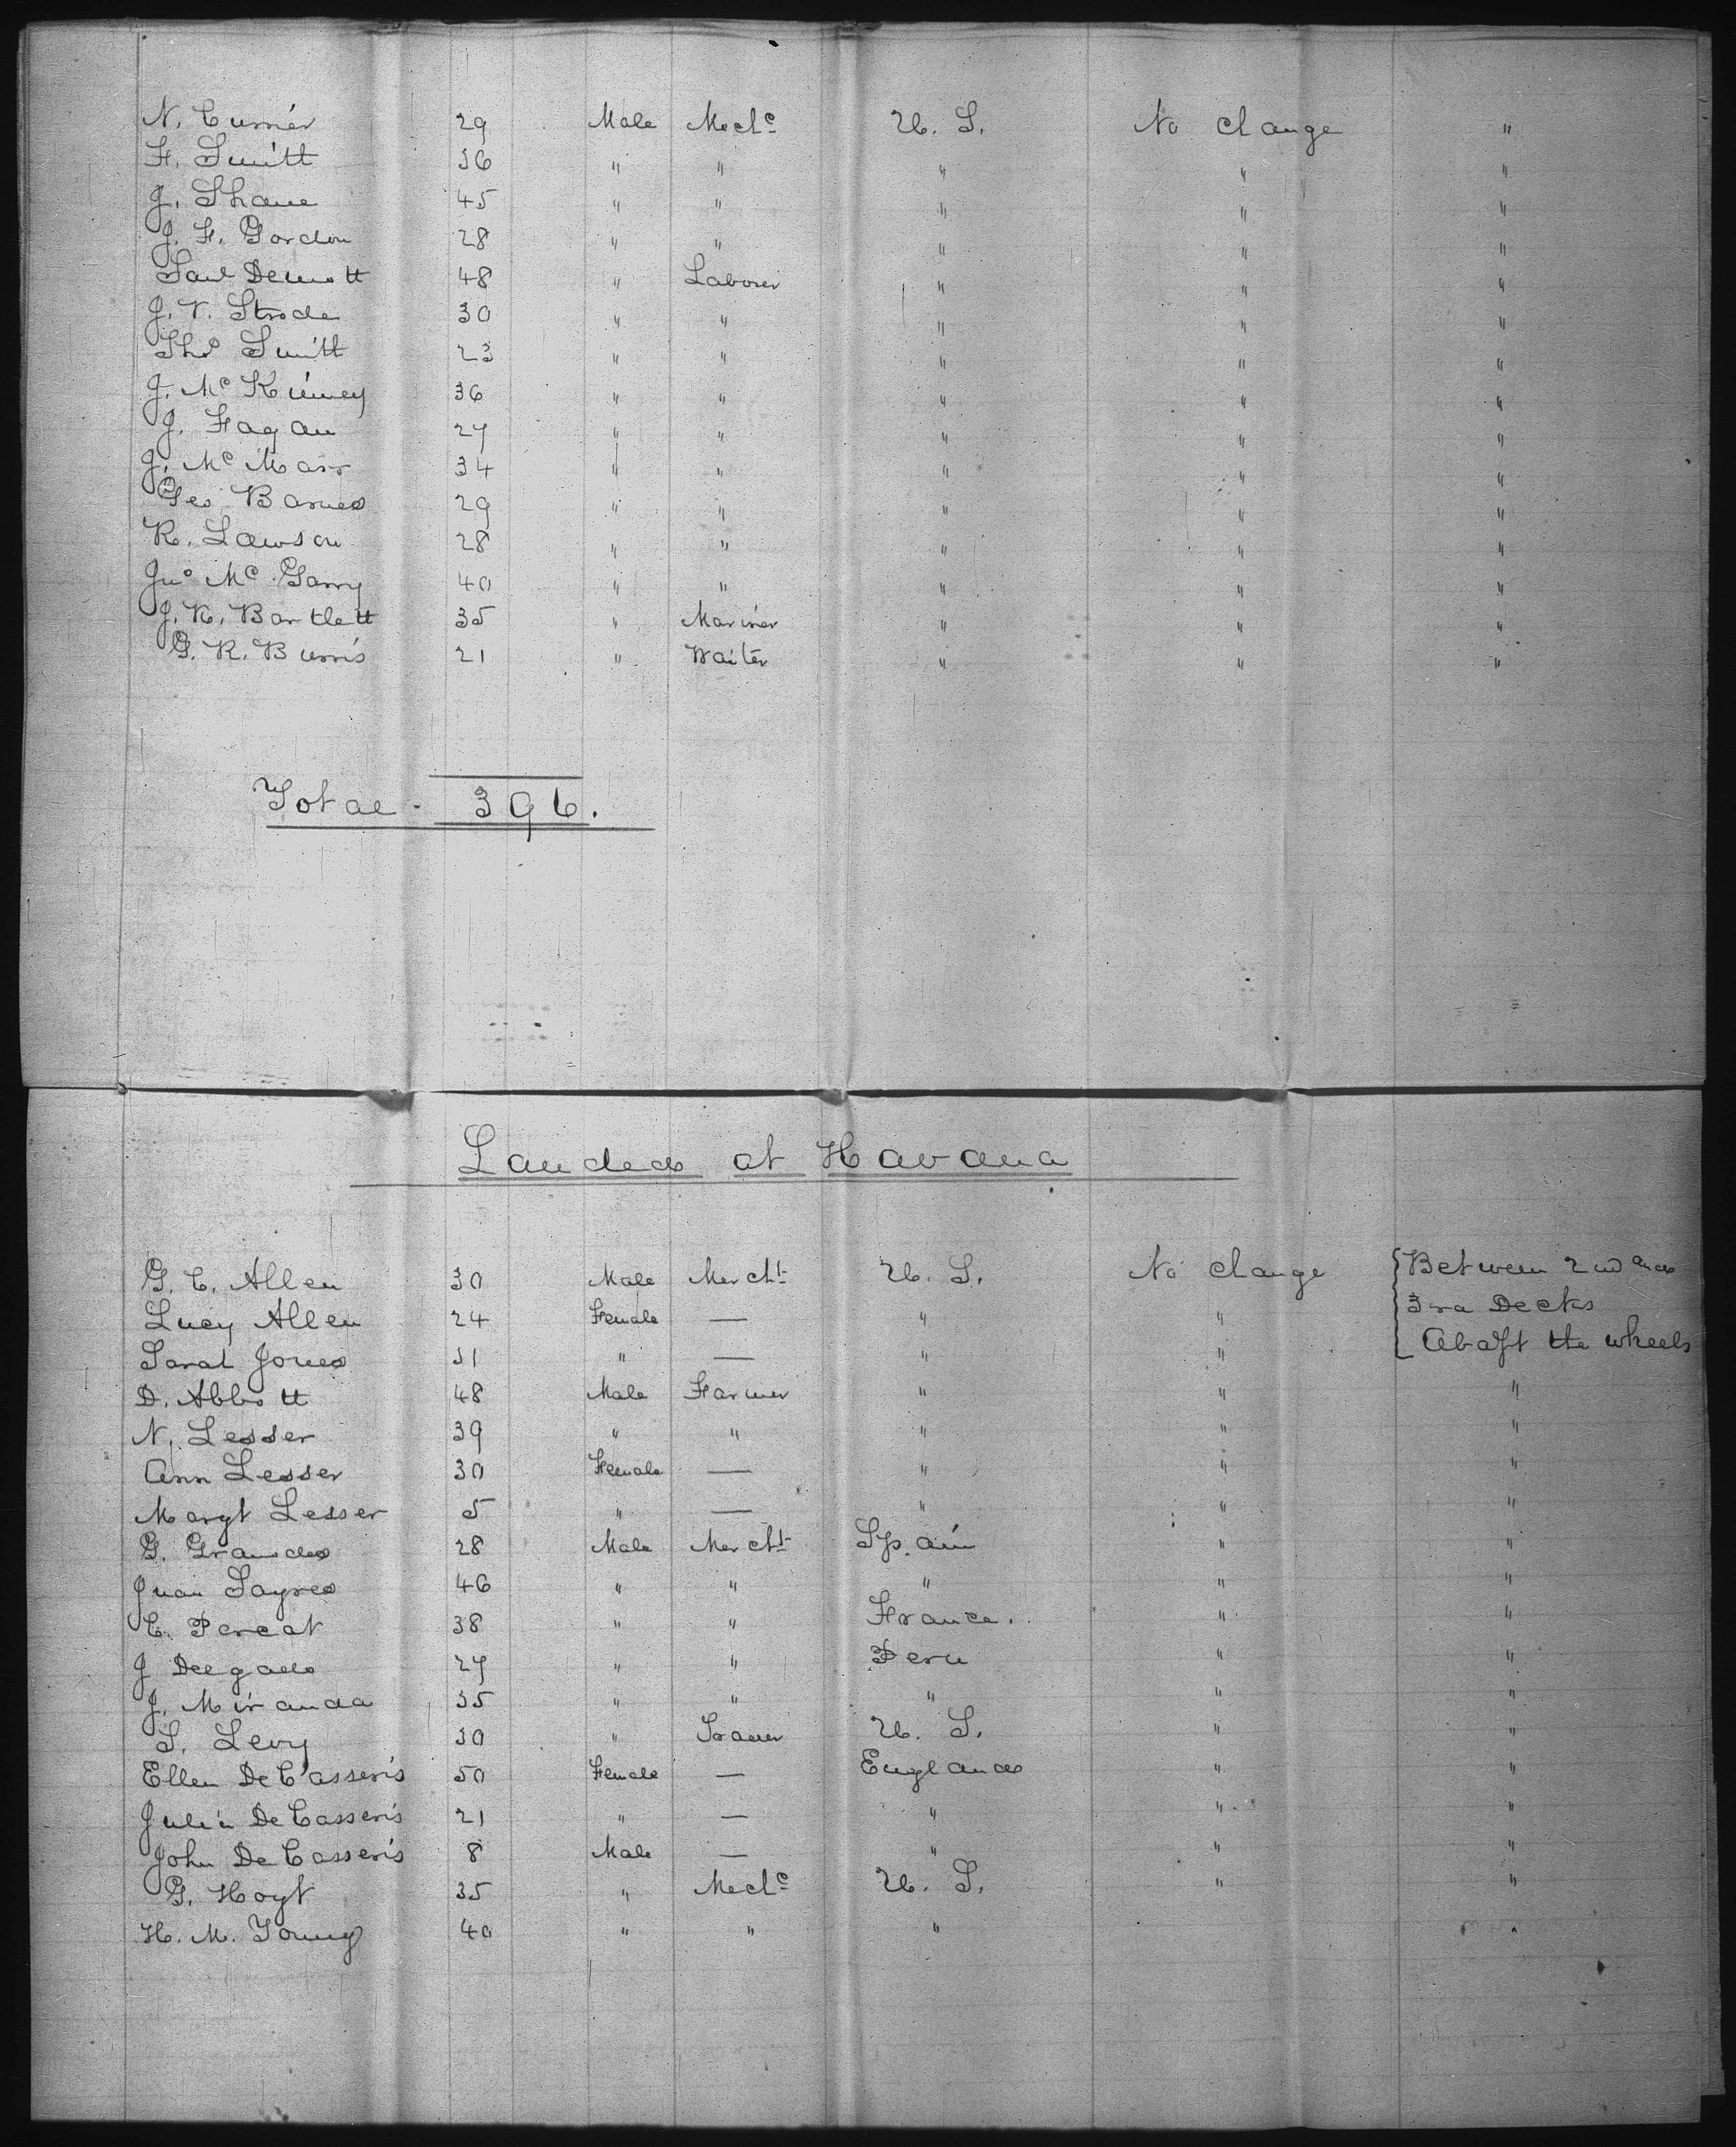 N. Currier 29 Male Mech^c U. S. No change "
F. Smith 36 " " " " "
J. Shane 45 " " " " "
J. F. Gordon 28 " " " " "
Saml Demott 48 " Laborer " " "
J. V. Strode 30 " " " " "
Tho^s Smith 23 " " " " "
J. Mc Kinney 36 " " " " "
J. Fagan 27 " " " " "
J. Mc Marr 34 " " " " "
Geo Barnes 29 " " " " "
R. Lawson 28 " " " " "
Jno Mc Garry 40 " " " " "
J. R. Bartlett 35 " Mariner " " "
G. R. Burris 21 " Waiter " " "
Total - 396.
Landed at Havana
G. C. Allen 30 Male Merch^t U. S. No change Between 2nd and
Lucy Allen 24 Female — " " 3rd Decks
Sarah Jones 31 " — " " Abaft the wheels
D. Abbott 48 Male Farmer " " "
N. Lesser 39 " " " " "
Ann Lesser 30 Female — " " "
Margt Lesser 5 " — " " "
G. Grandes 28 Male Merch^t Spain " "
Juan Sayres 46 " " " " "
C. Percat 38 " " France. " "
J Delgado 27 " " Peru " "
J. Miranda 35 " " " " "
S. Levy 30 " Trader U. S. " "
Ellen De Casseris 50 Female — England " "
Julia De Casseris 21 " — " " "
John De Casseris 8 Male — " " "
G. Hoyt 35 " Mech^c U. S. " "
H. M. Young 40 " " " "